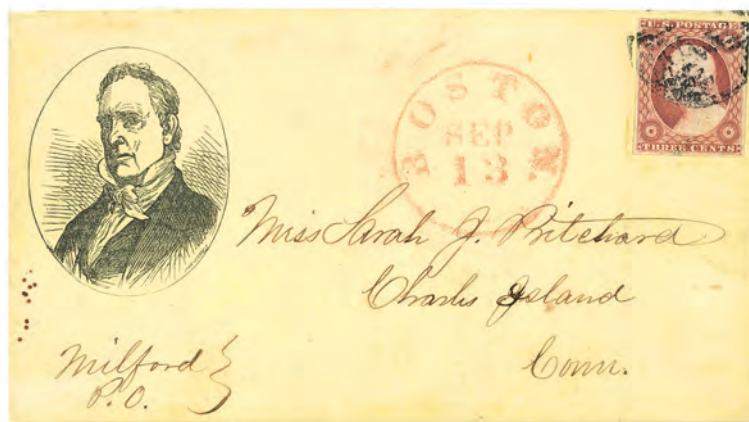 U.S. POSTAGE
THREE CENTS
BOSTON
SEP
13
Miss Sarah J. Pritchard
Charles Island
Conn.
Milford
P.O.